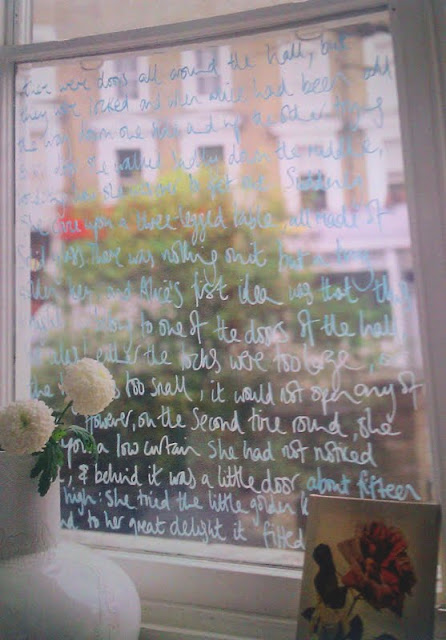 there were doors all around the hall, but
they were locked and when Alice had been all
the way down one side and up the other trying
every door she walked sadly down the middle,
wondering how she was ever to get out. Suddenly
she came upon a three legged table, all made of
Solid glass there was nothing on it but a tiny
golden key and Alice's first idea was that this
might belong to one of the doors of the hall
alas! either the locks were too large, or
the was too small, it would not open any of
However, on the second time round, she
upon a low curtain she had not noticed
, & behind it was a little door about fifteen
high: she tried the little golden
to her great delight it fitted